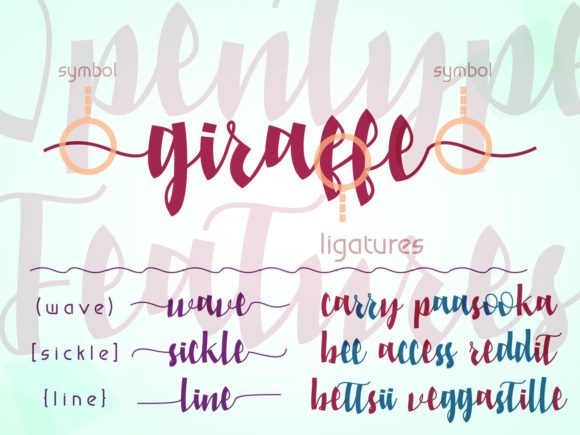 Opentype
Features
symbol symbol
giraffe
ligatures
(wave) wave carry paasooka
[sickle] sickle bee access reddit
{line} line bettsii veggastille